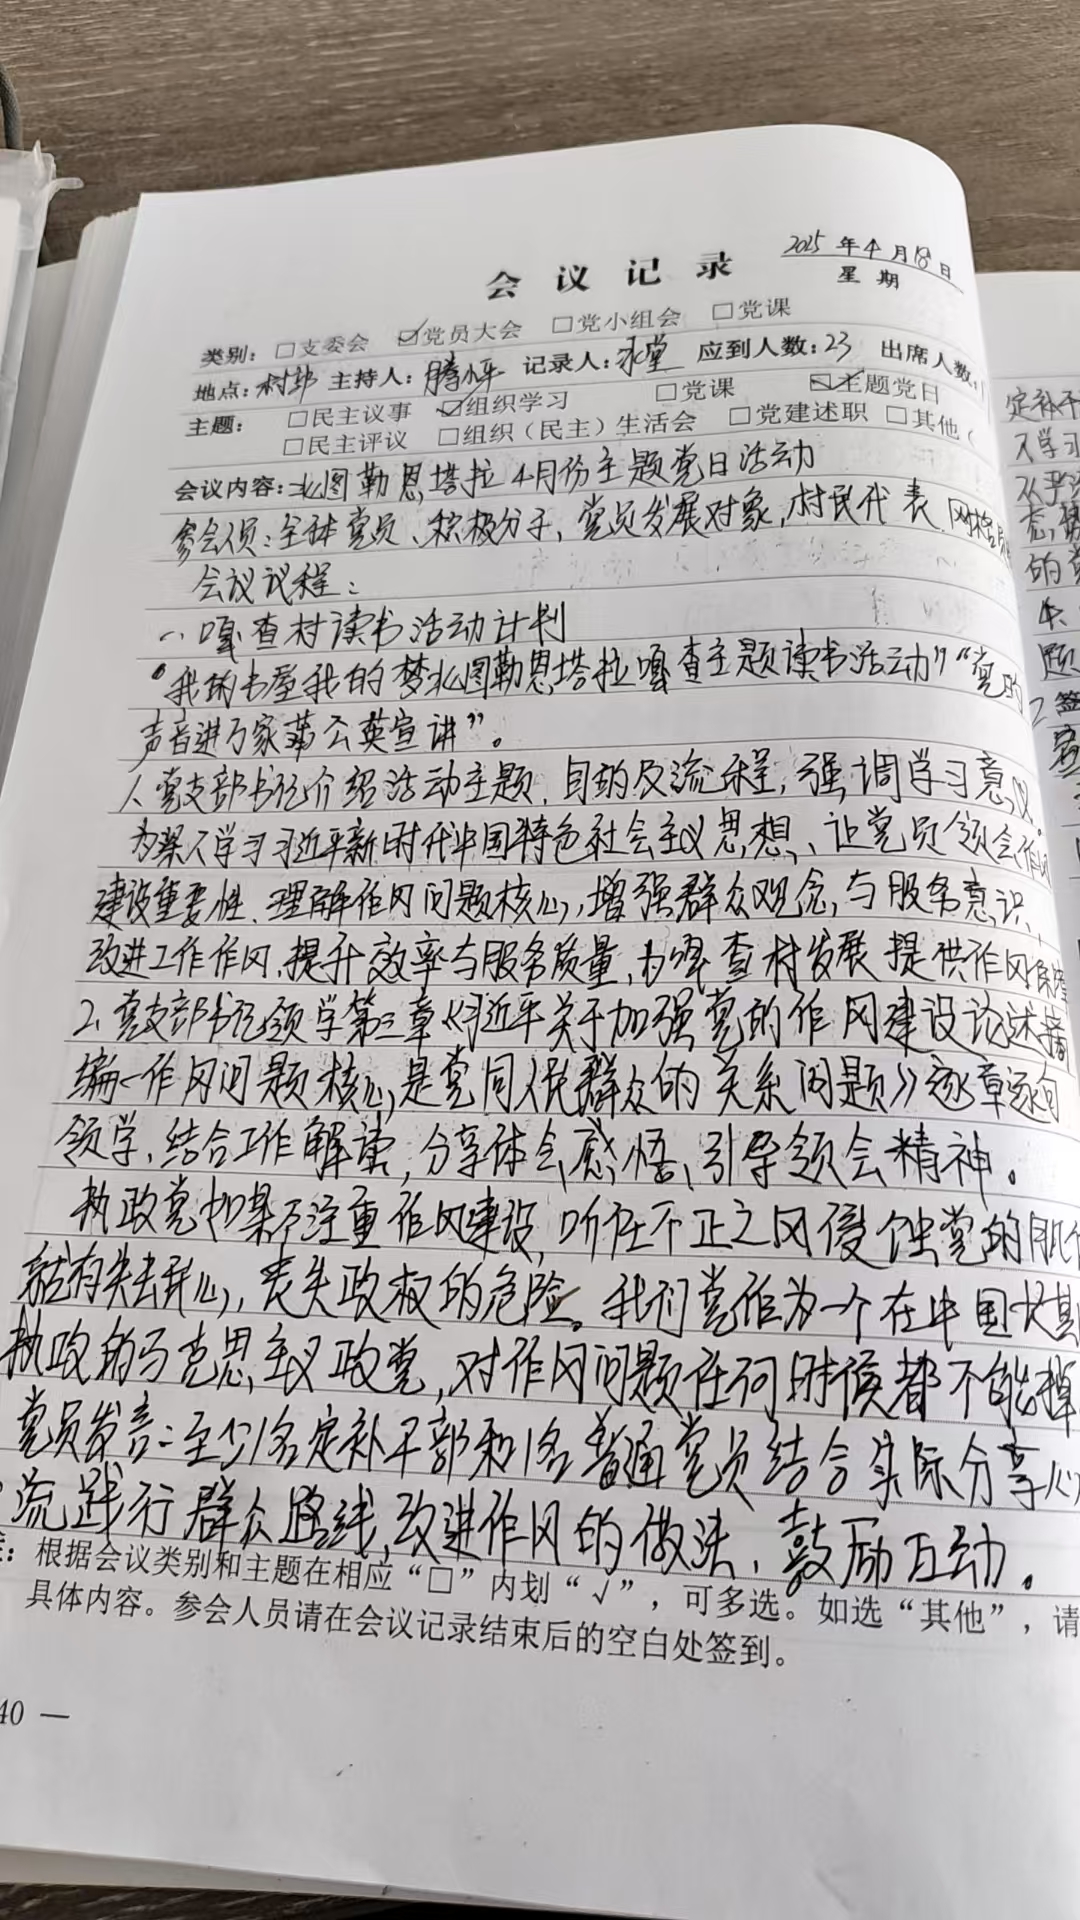 2025年4月18日
会议记录
星期
类别：□支委会 ☑党员大会 □党小组会 □党课
地点：村部 主持人：腾小平 记录人：永堂 应到人数：23 出席人数：
主题：□民主议事 ☑组织学习 □党课 ☑主题党日
□民主评议 □组织（民主）生活会 □党建述职 □其他（
会议内容：北图勒恩塔拉4月份主题党日活动
参会人员：全体党员、积极分子、党员发展对象，村民代表 网格员
会议议程：
一、嘎查村读书活动计划
“我的书屋我的梦北图勒恩塔拉嘎查主题读书活动”“党的
声音进万家蒲公英宣讲”。
1、党支部书记介绍活动主题、目的及流程，强调学习意义。
为深入学习习近平新时代中国特色社会主义思想、让党员领会作风
建设重要性、理解作风问题核心，增强群众观念，与服务意识、
改进工作作风，提升效率与服务质量，为嘎查村发展提供作风保障
2、党支部书记领学第三章《习近平关于加强党的作风建设论述摘
编－作风问题核心是党同人民群众的关系问题》逐章逐句
领学，结合工作解读，分享体会感悟，引导领会精神。
执政党如果不注重作风建设，听任不正之风侵蚀党的肌体
就有失去民心，丧失政权的危险。我们党作为一个在中国长期
执政的马克思主义政党，对作风问题任何时候都不能掉
党员发言：至少1名定补干部和1名普通党员结合实际分享
流践行群众路线，改进作风的做法，鼓励互动。
：根据会议类别和主题在相应“□”内划“√”，可多选。如选“其他”，请
具体内容。参会人员请在会议记录结束后的空白处签到。
40 —
定补干
入学习
从严治
的
题
2 签